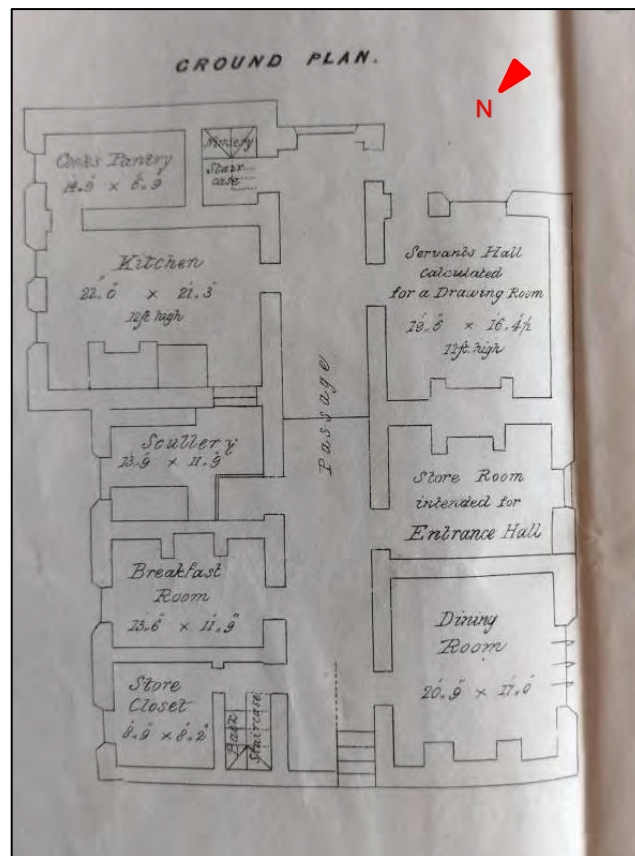 GROUND PLAN.
N
Cook's Pantry
14.9 × 6.9
Nursery
Stair
case
Kitchen
22.0 × 21.3
12ft high
Servants Hall
calculated
for a Drawing Room
19.6 × 16.4½
12ft. high
Passage
Scullery
13.9 × 11.9
Store Room
intended for
Entrance Hall
Breakfast
Room
13.6 × 11.9
Dining
Room
20.9 × 17.0
Store
Closet
8.2
Back
Staircase